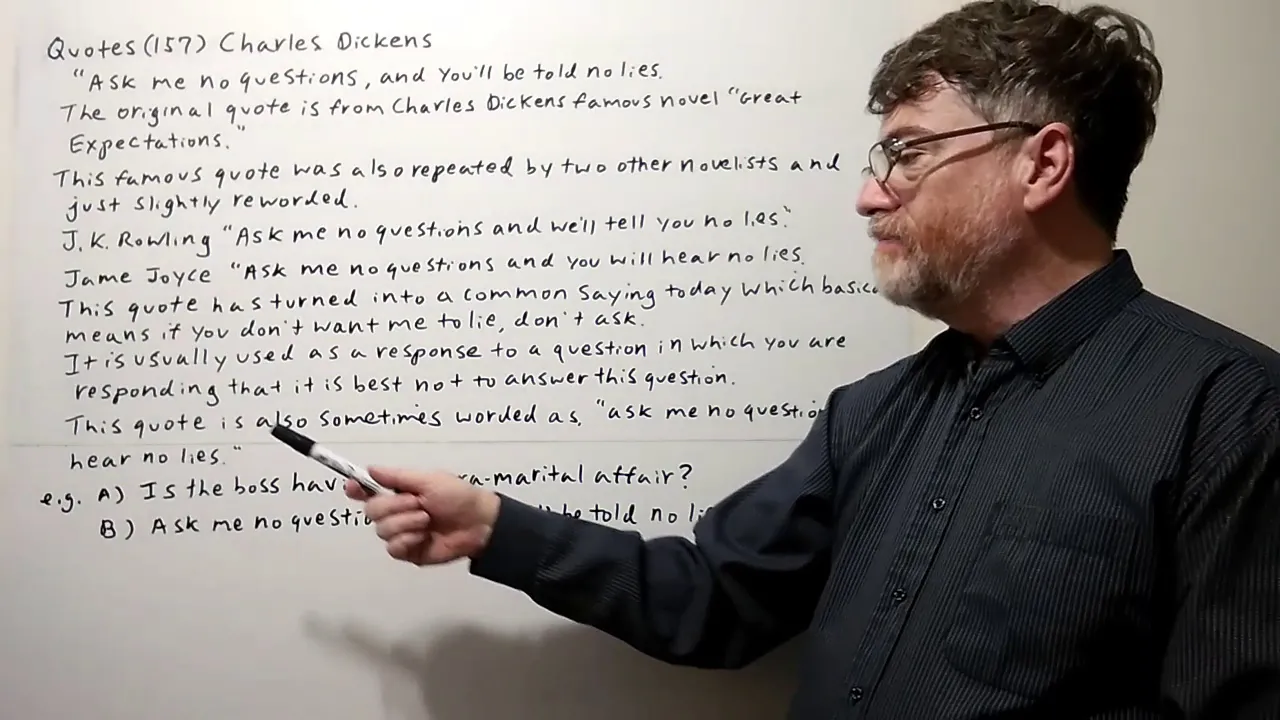 Quotes (157) Charles Dickens
"Ask me no questions, and you'll be told no lies.
The original quote is from Charles Dickens famous novel "Great
Expectations."
This famous quote was also repeated by two other novelists and
just slightly reworded.
J.K. Rowling "Ask me no questions and we'll tell you no lies."
Jame Joyce "Ask me no questions and you will hear no lies.
This quote has turned into a common saying today which basic
means if you don't want me to lie, don't ask.
It is usually used as a response to a question in which you are
responding that it is best not to answer this question.
This quote is also sometimes worded as, "ask me no questio
hear no lies."
e.g. A) Is the boss hav a-marital affair?
B) Ask me no questio be told no li